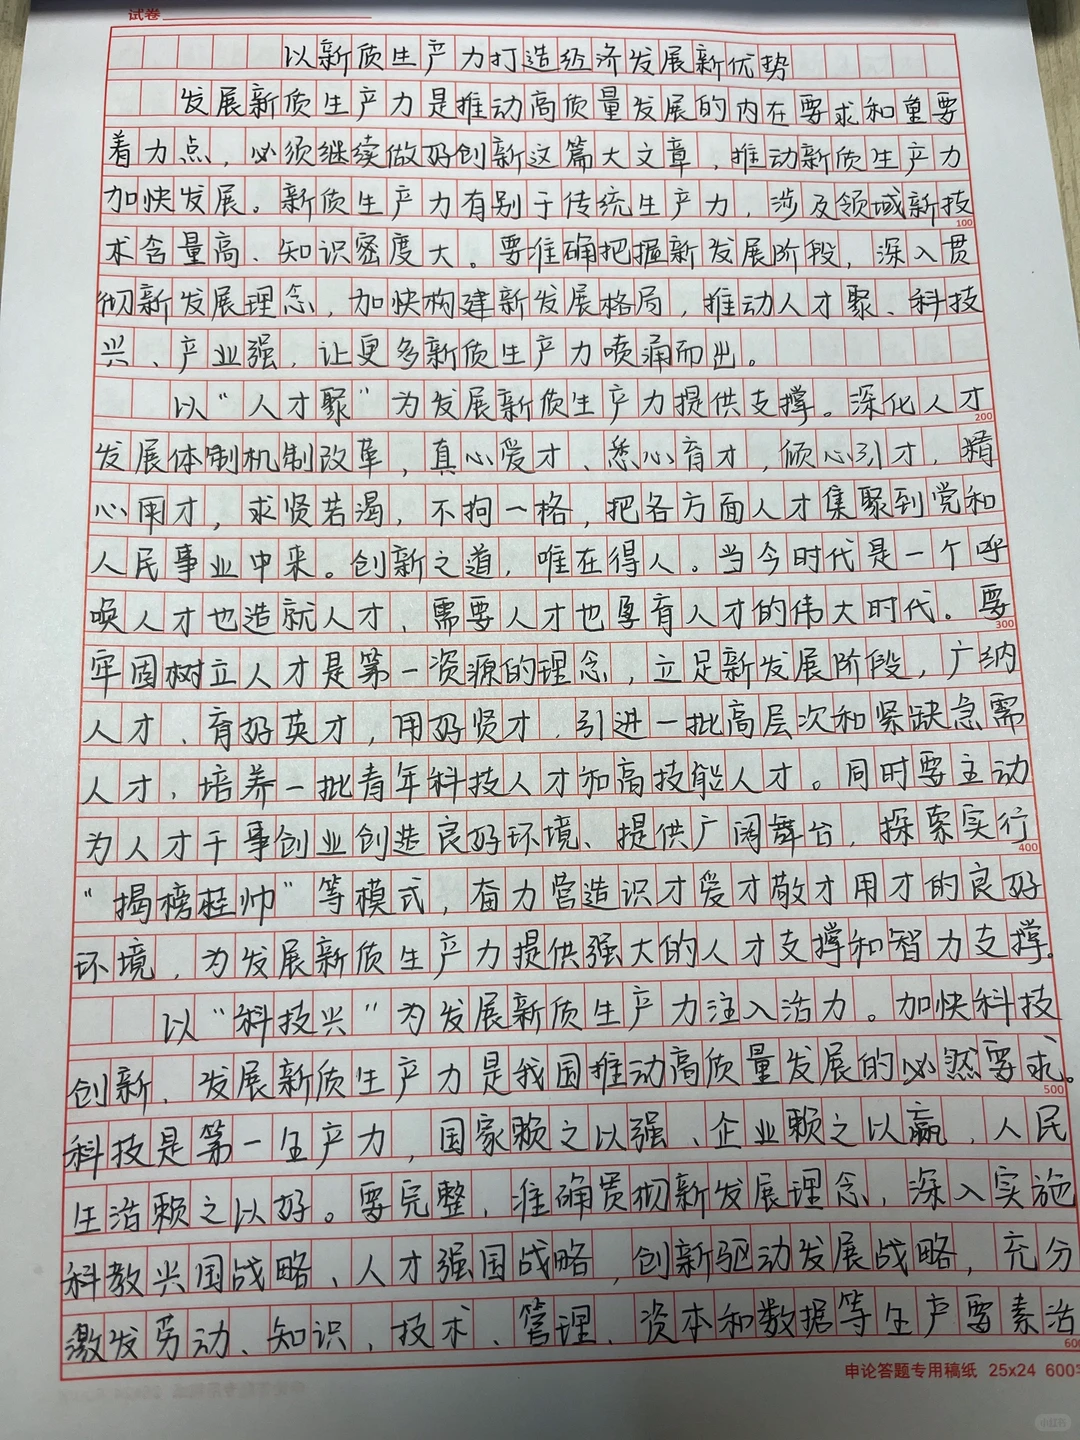 试卷
以新质生产力打造经济发展新优势
发展新质生产力是推动高质量发展的内在要求和重要
着力点，必须继续做好创新这篇大文章，推动新质生产力
加快发展。新质生产力有别于传统生产力，涉及领域新技
100
术含量高、知识密度大。要准确把握新发展阶段，深入贯
彻新发展理念，加快构建新发展格局，推动人才聚、科技
兴、产业强，让更多新质生产力喷涌而出。
以“人才聚”为发展新质生产力提供支撑。深化人才
200
发展体制机制改革，真心爱才、悉心育才，倾心引才，精
心用才，求贤若渴，不拘一格，把各方面人才集聚到党和
人民事业中来。创新之道，唯在得人。当今时代是一个呼
唤人才也造就人才，需要人才也孕育人才的伟大时代。要
300
牢固树立人才是第一资源的理念，立足新发展阶段，广纳
人才、育好英才，用好贤才，引进一批高层次和紧缺急需
人才，培养一批青年科技人才和高技能人才。同时要主动
为人才干事创业创造良好环境、提供广阔舞台，探索实行
400
“揭榜挂帅”等模式，奋力营造识才爱才敬才用才的良好
环境，为发展新质生产力提供强大的人才支撑和智力支撑。
以“科技兴”为发展新质生产力注入活力。加快科技
创新、发展新质生产力是我国推动高质量发展的必然要求。
500
科技是第一生产力，国家赖之以强、企业赖之以赢，人民
生活赖之以好。要完整，准确贯彻新发展理念，深入实施
科教兴国战略、人才强国战略，创新驱动发展战略，充分
激发劳动、知识，技术、管理、资本和数据等生产要素活
600
申论答题专用稿纸 25x24 600字
小红书